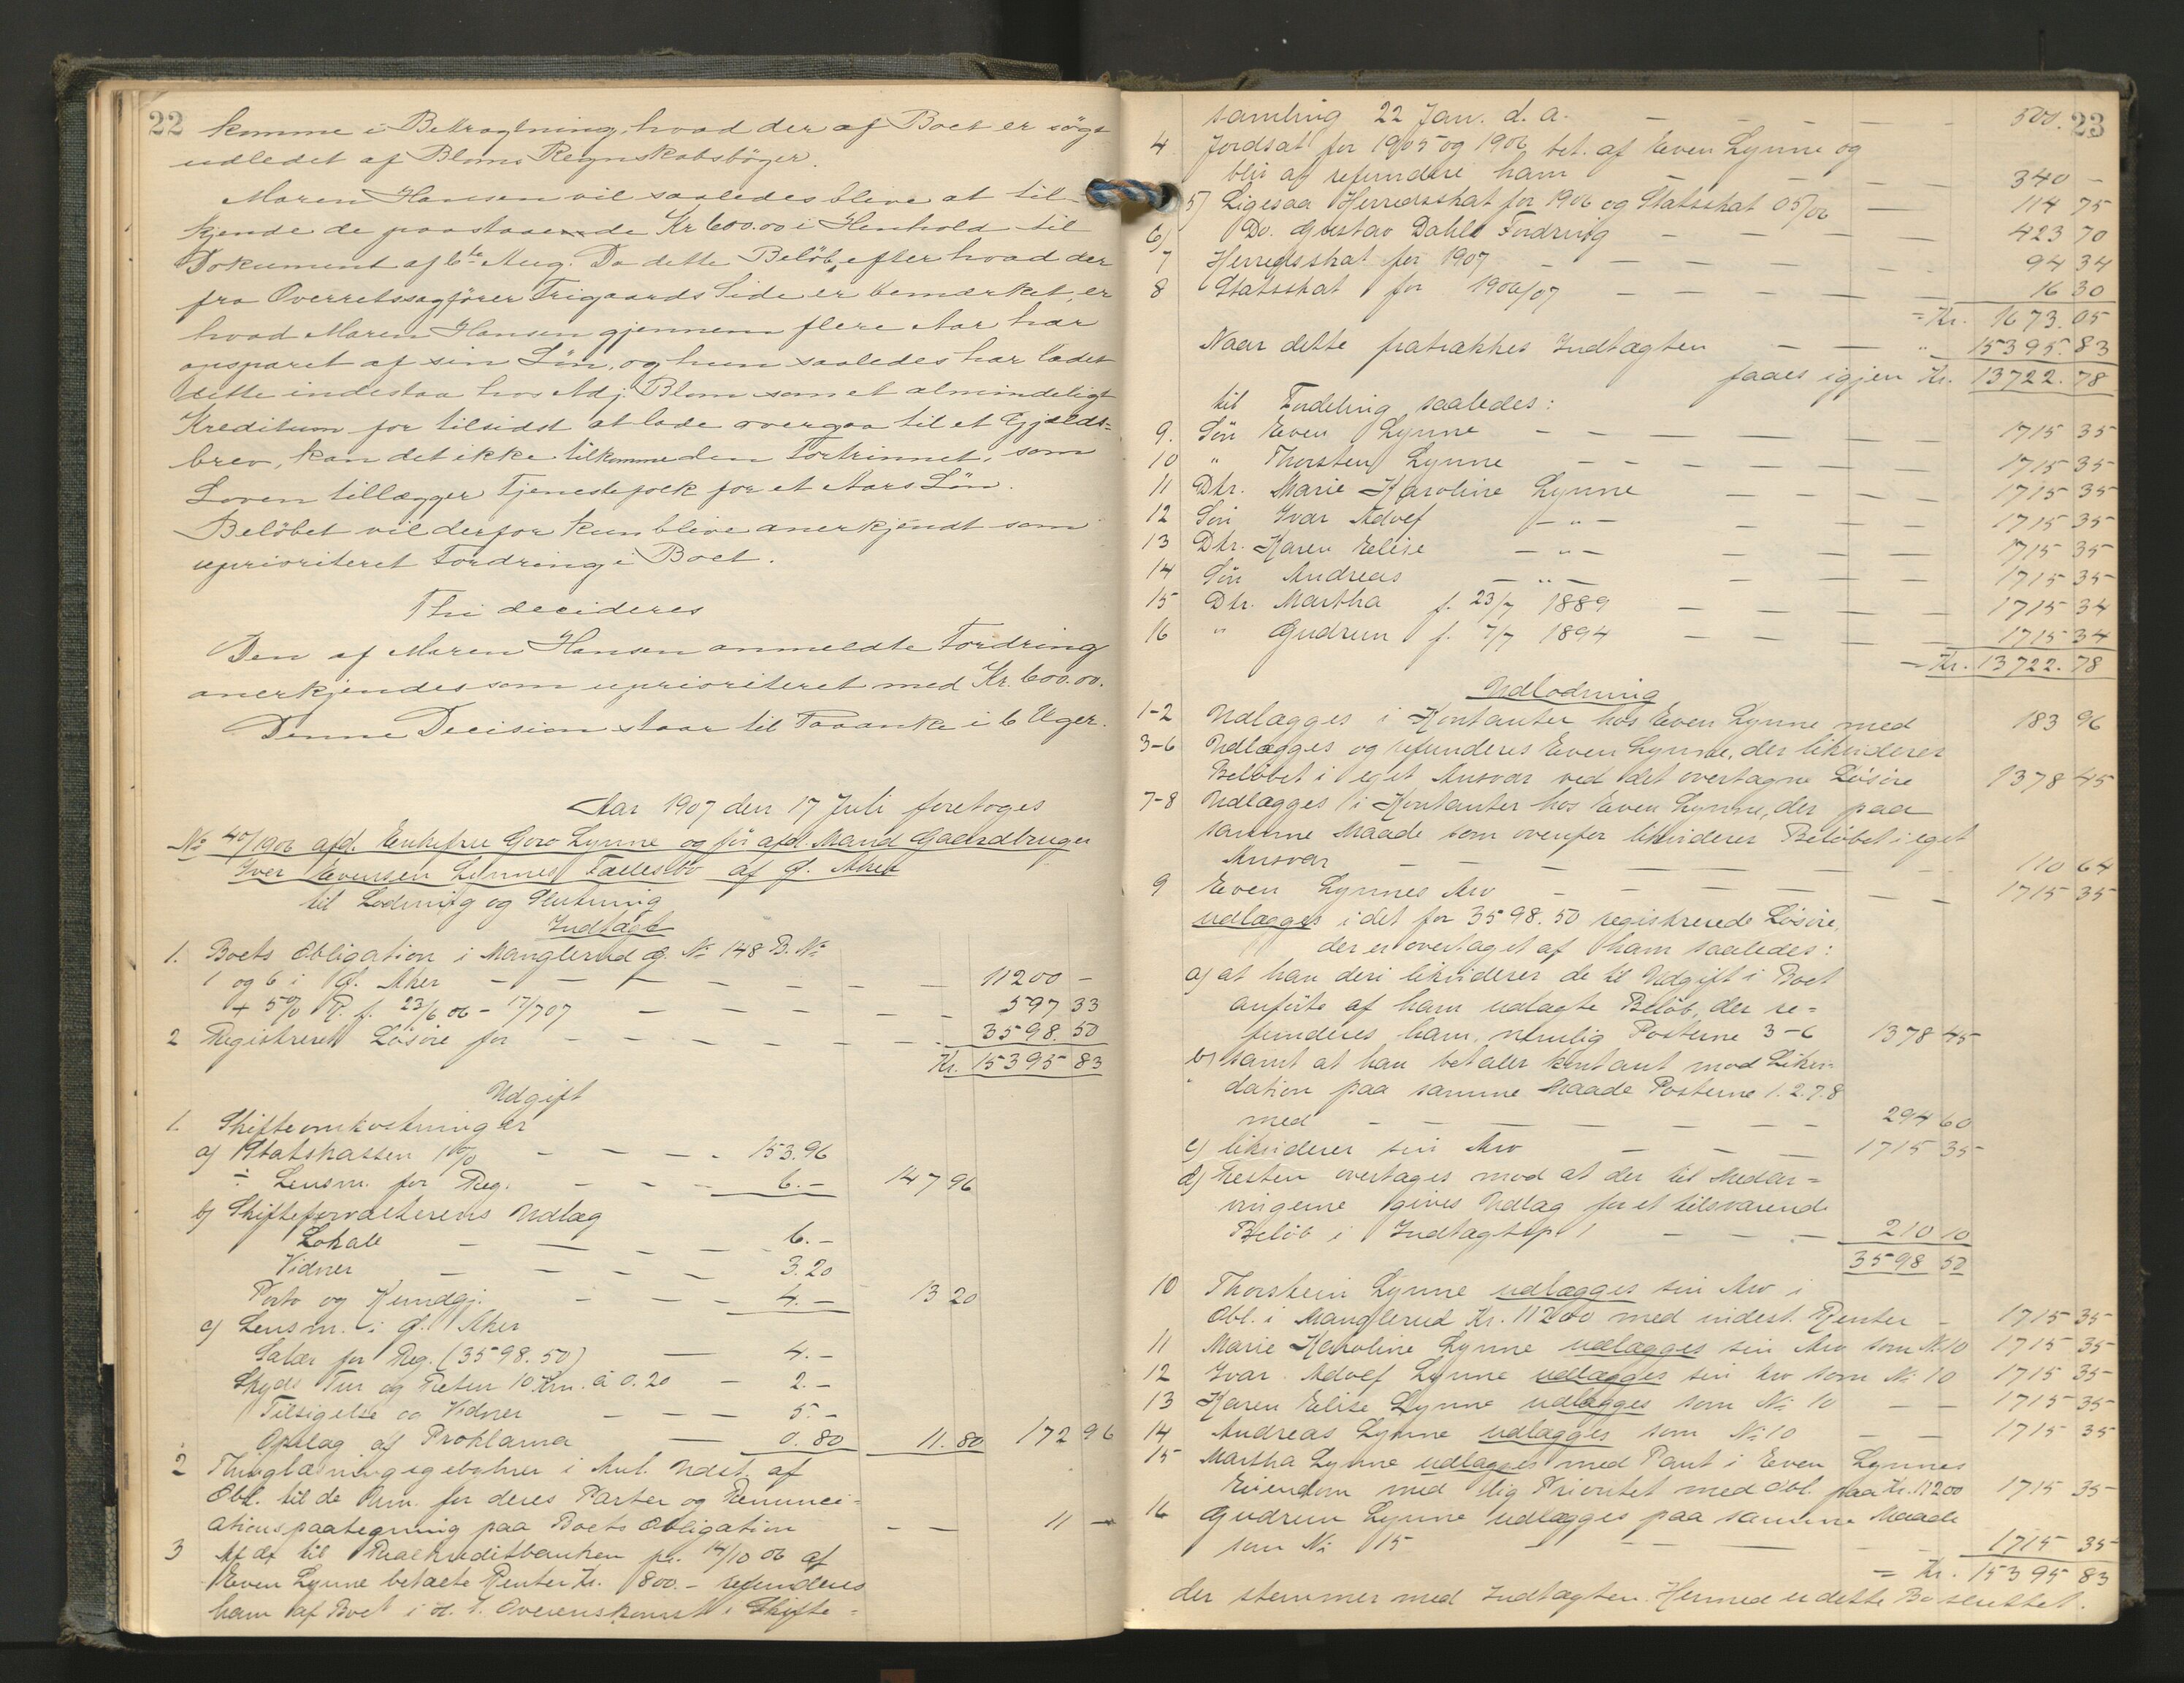 22
komme i Betragtning, hvad der af Boet er søgt
udledet af Bloms Regnskabsbøger.
Maren Hansen vil saaledes blive at til-
kjende de paastaaende Kr 600.00 i Henhold til
Dokument af 6te Aug. Da dette Beløb, efter hvad der
fra Overretssagfører Trigaards Side er bemærket, er
hvad Maren Hansen gjennem flere Aar har
opsparet af sin Løn, og hun saaledes har ladet
dette indestaa hos Adj. Blom som et almindeligt
Kreditum for tilsidst at lade overgaa til et Gjælds=
brev, kan det ikke tilkomme den Fortrinnet, som
Loven tillægger Tjenestefolk for et Aars Løn.
Beløbet vil derfor kun blive anerkjendt som
uprioriteret Fordring i Boet.
Thi decideres
Den af Maren Hansen anmeldte Fordring
anerkjendes som uprioriteret med Kr. 600.00.
Denne Decision staar til Paaanke i 6 Uger.
Aar 1907 den 17 Juli foretoges
No 40/1906 afd. Enkefru Goro Lynne og før afd. Mand Gaardbruger
Iver Evensen Lynnes Fællesbo af Ø. Aker
til Lodning og Slutning
Indtægt
1. Boets Obligation i Manglerud G. No 148 B. No
1 og 6 i Ø. Aker — — — — — — 11200 -
+ 5% R. f. 23/6 06 - 17/7 07 — — — — — 597 33
2 Registreret Løsøre for — — — — — — 3598.50
Kr. 15395 83
Udgift
1. Skifteomkostninger
a) Statskassen 1% — — — 153.96
÷ Lensm. for Reg. — — — 6.- 147 96
b) Skifteforvalterens Udlæg
Lokale — — — — 6.-
Vidner — — — — 3.20
Porto og Kundgj. — — — 4.- 13 20
c) Lensm. i Ø. Aker
Salær for Reg. (3598.50) — 4.-
Skyds Tur og Retur 10 Km. à 0.20 — 2.-
Tilsigelse og Vidner — — — 5.-
Opslag af Proklama — 0.80 11.80 172 96
2 Thinglæsningsgebyhrer i Anl. Udst. af
Obl. til de Arv. for deres Parter og Renunci=
ationspaategning paa Boets Obligation — — 11 -
3 Af de til Realkreditbanken pr. 14/10 06 af
Even Lynne betalte Renter Kr. 800.- refunderes
ham af Boet i H. t. Overenskomst i Skifte=
23
samling 22 Jan. d. a. — — — — — 500.
4 Jordsat for 1905 og 1906 bet. af Even Lynne og
bliv at refundere ham — — — — — 340 -
5) Ligesaa Herredsskat for 1906 og Statsskat 05/06 — — 114 75
6) Do. Gustav Dahls Fordring — — — — — 423 70
7 Herredsskat for 1907 — — — — — 94 34
8 Statsskat for 1906/07 — — — — — 16 30
= Kr. 1673.05
Naar dette fratrækkes Indtægten — — " 15395.83
faaes igjen Kr. 13722.78
til Fordeling saaledes:
9. Søn Even Lynne — — — — — — 1715 35
10 " Thorsten Lynne — — — — — — 1715 35
11 Dtr. Marie Karoline Lynne — — — — 1715 35
12 Søn Ivar Adolf — " — — — — 1715 35
13 Dtr. Karen Elise — " — — — — 1715 35
14 Søn Andreas — " — — — — 1715 35
15 Dtr. Martha f. 23/7 1889 — — — — 1715 34
16 " Gudrun f. 7/7 1894 — — — — 1715 34
= Kr. 13722.78
Udlodning
1-2 Udlægges i Kontanter hos Even Lynne med 183 96
3-6 Udlægges og refunderes Even Lynne, der likviderer
Beløbet i eget Ansvar ved det overtagne Løsøre 1378 45
7-8 Udlægges i Kontanter hos Even Lynne, der paa
samme Maade som ovenfor likviderer Beløbet i eget
Ansvar — — — — — — 110 64
9 Even Lynnes Arv — — — — — — 1715 35
udlægges i det for 3598.50 registrerede Løsøre,
der er overtaget af ham saaledes:
a) at han deri likviderer de til Udgift i Boet
anførte af ham udlagte Beløb, der re=
funderes ham, nemlig Posterne 3-6 1378 45
b) samt at han betaler kontant mod Likvi=
dation paa samme Maade Posterne 1.2.7.8
med — — — — — — 294 60
c) likviderer sin Arv — — — 1715 35
d) Resten overtages mod at der til Medar=
vingerne gives Udlæg for et tilsvarende
Beløb i Indtægtsp. 1 — — — 210 10
3598 50
10 Thorstein Lynne udlægges sin Arv i
Obl. i Manglerud Kr. 11200 med indest. Renter — 1715 35
11 Marie Karoline Lynne udlægges sin Arv som No 10 1715 35
12 Ivar Adolf Lynne udlægges sin Arv som No 10 1715 35
13 Karen Elise Lynne udlægges som No 10 — — 1715 35
14 Andreas Lynne udlægges som No 10 — — 1715 35
15 Martha Lynne udlægges med Pant i Even Lynnes
Eiendom med lig Prioritet med Obl. paa Kr. 11200 1715 35
16 Gudrun Lynne udlægges paa samme Maade
som No 15 — — — — — 1715 35
= Kr. 15395 83
der stemmer med Indtægten. Hermed er dette Bo sluttet.